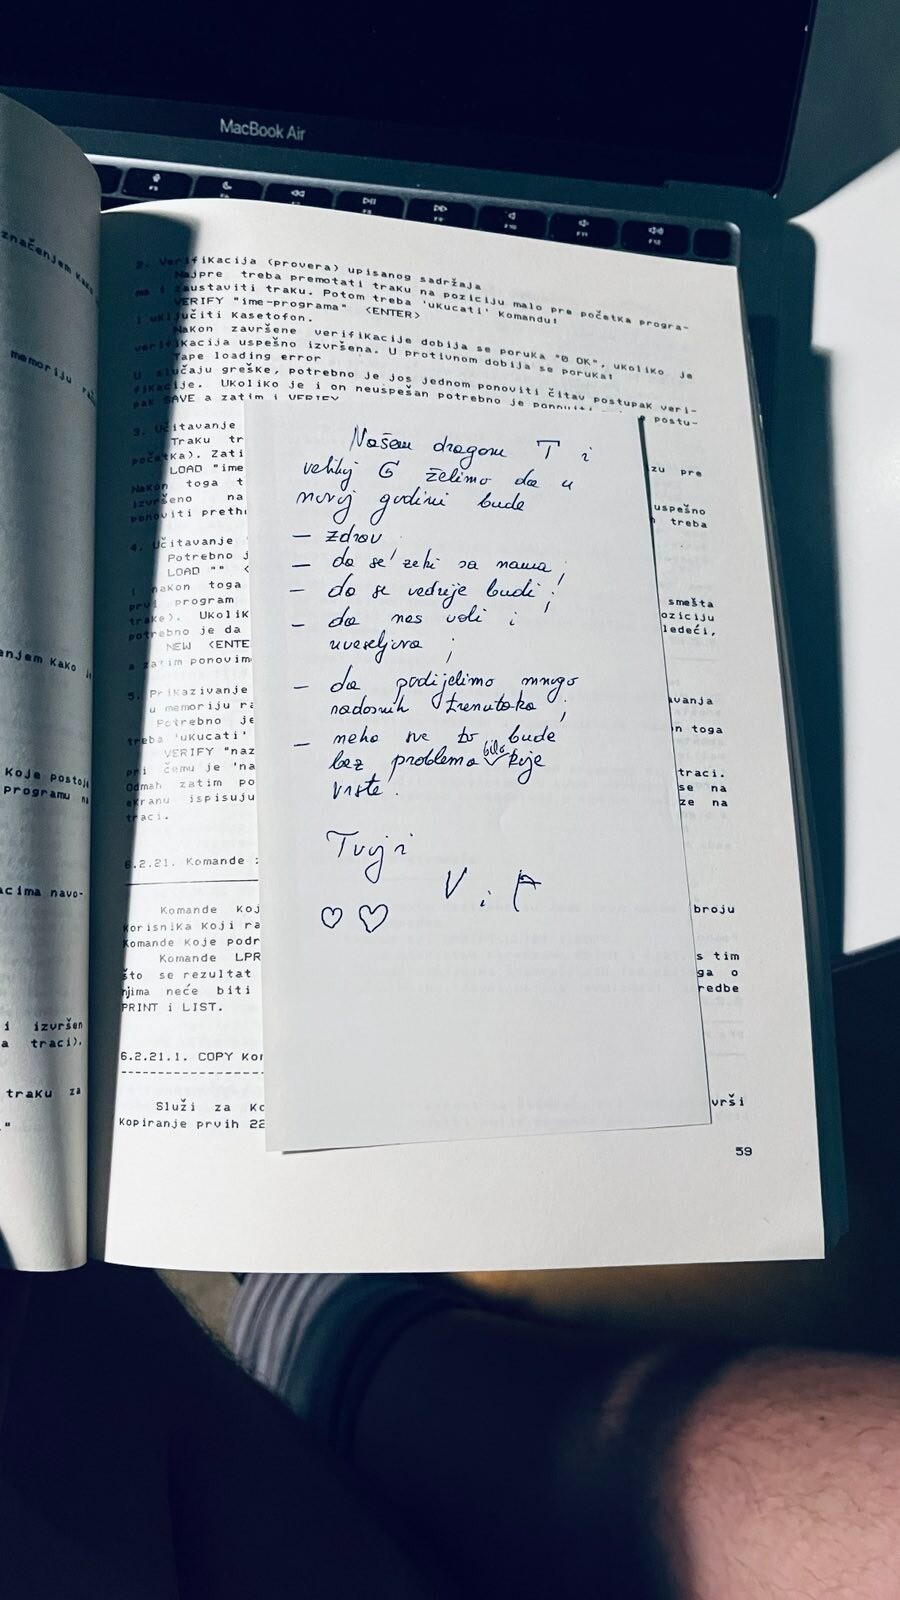 MacBook Air
značenjem kako
memoriju
enjem kako
Koje postoj
programu
acima navo-
i izvršen
a traci).
traku za
"
2. Verifikacija (provera) upisanog sadržaja
Najpre treba premotati traku na poziciju malo pre početka progra-
ma i zaustaviti traku. Potom treba 'ukucati' komandu:
VERIFY "ime-programa" <ENTER>
i uključiti kasetofon.
Nakon završene verifikacije dobija se poruka "0 OK", ukoliko je
verifikacija uspešno izvršena. U protivnom dobija se poruka:
Tape loading error
U slučaju greške, potrebno je jos jednom ponoviti čitav postupak veri-
fikacije. Ukoliko je i on neuspešan potrebno je ponoviti postu-
pak SAVE a zatim i VERIFY
3. Učitavanje
Traku tr
zu pre
početka). Zati
LOAD "ime
Nakon toga t
uspešno
izvršeno na
treba
ponoviti preth
4. Učitavanje
Potrebno j
LOAD "" <
i nakon toga
smešta
prvi program
oziciju
trake). Ukolik
ledeći,
potrebno je da
NEW <ENTE
a zatim ponovim
5. Prikazivanje
avanja
u memoriju ra
Potrebno je
on toga
treba 'ukucati'
VERIFY "naz
pri čemu je 'na
traci.
Odmah zatim po
se na
ekranu ispisuju
ze na
traci.
6.2.21. Komande
Komande koj
broju
korisnika koji ra
Komande koje podr
Komande LPR
s tim
što se rezultat
ga o
njima neće biti
redbe
PRINT i LIST.
6.2.21.1. COPY Ko
Služi za Ko
vrši
Kopiranje prvih 22
59
Našem dragom T i
velikoj G želimo da u
novoj godini bude
– zdrav
– da se zeki sa nama;
– da se vedrije budi;
– da nas voli i
uveseljava;
– da podijelimo mnogo
radosnih trenutaka;
– neka sve to bude
bez problema bilo koje
vrste.
Tvoji
V i A
♡ ♡